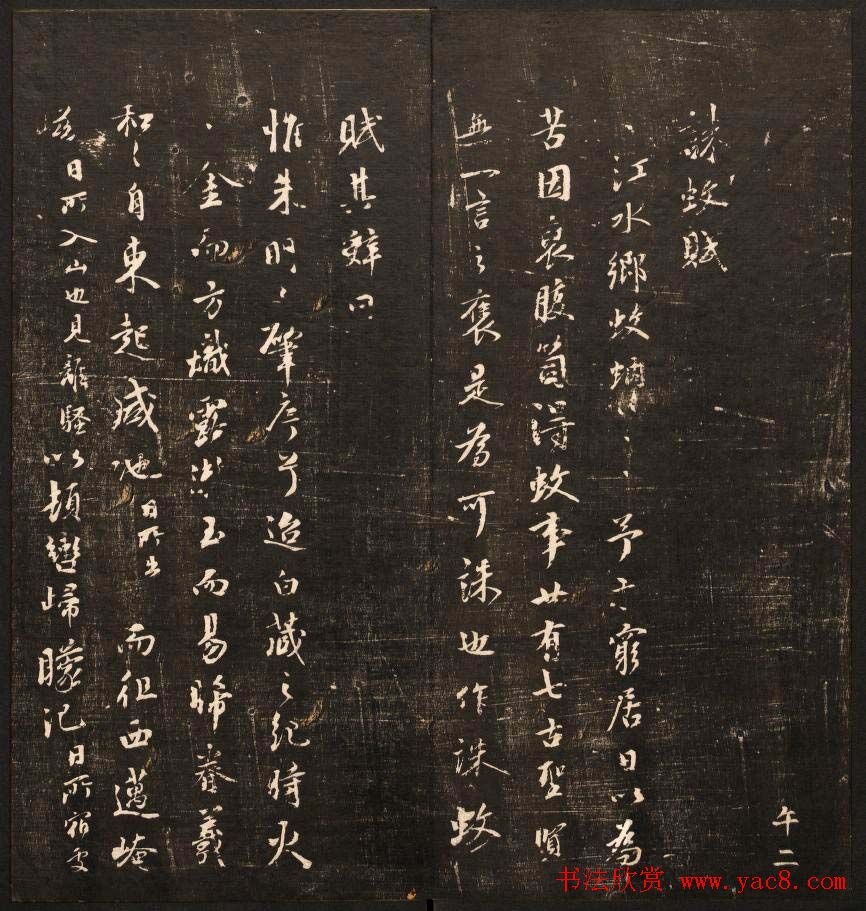 午二
誅蚊賦
江水鄉蚊 予方窮居日以為
苦因裒腹笥得蚊事廿有七古聖賢
無一言之褒是為可誅也作誅蚊
賦其辭曰
惟朱明之肇序兮迨白藏之紀時火
金而方熾露漙玉而易晞眷羲
和之自東起咸池日所出而徂西邁崦
嵫日所入山也見離騷以頓轡歸矇汜日所宿處
书法欣赏 www.yac8.com